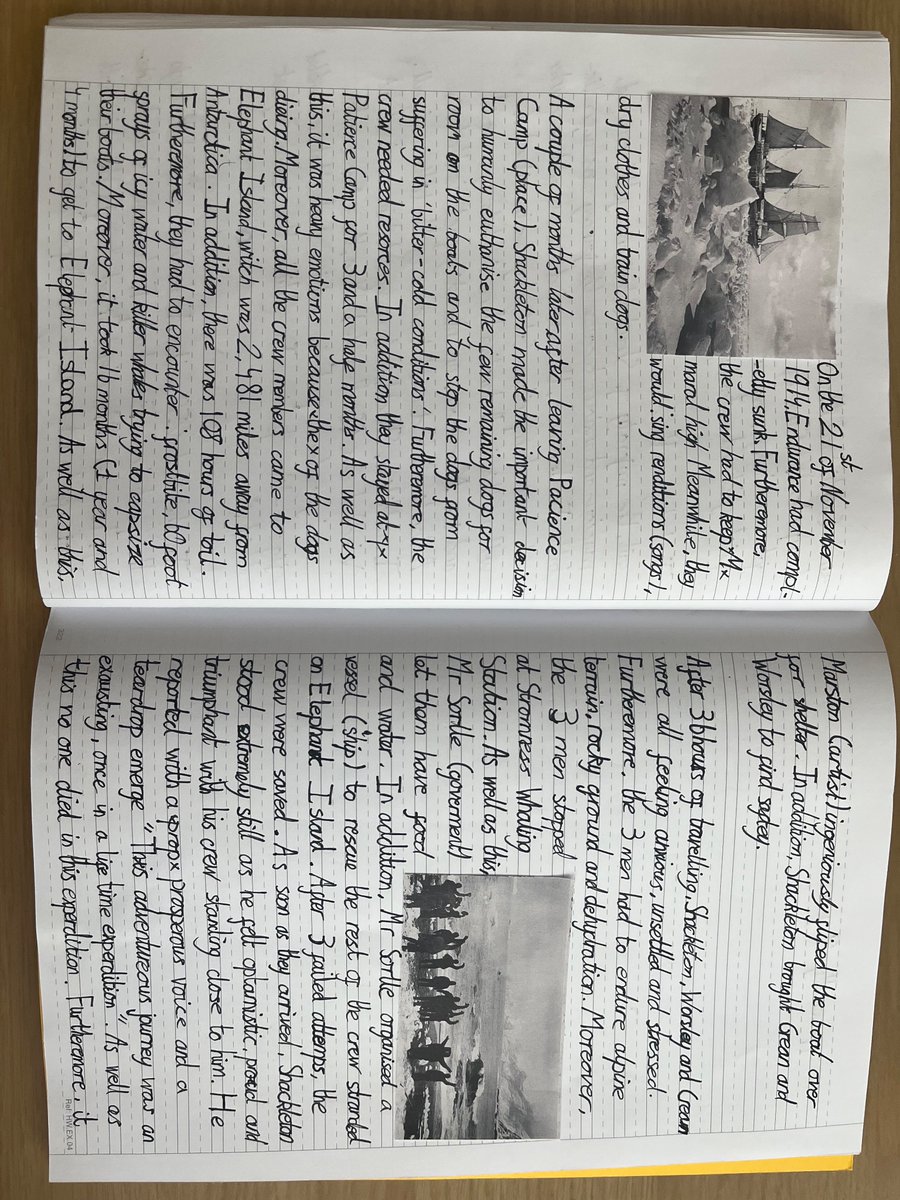 On the 21st of November
1914, Endurance had compl-
-etly sunk. Furthemore,
the crew had to keep Mx
maral high. Meanwhile, they
would sing renditions (songs),
dry clothes and train dogs.
A couple of months later, after leaving Pacience
Camp (place). Shuckleton made the important decision
to humanly euthanise the few remaining dogs for
room on the boats and to stop the dogs from
suffering in 'bitter-cold conditions'. Furthemore, the
crew needed resorces. In addition, they stayed at x
Patience Camp for 3 and a half months. As well as
this, it was heavy emotions because the x of the dogs
dieing. Moreover, all the crew members came to
Elephant Island, witch was 2,481 miles away from
Antarctica. In addition, there was 108 hours of toil.
Furthemore, they had to encounter frostbite, 60 foot
sprays of icy water and killer whales trying to capsize
their boats. Moreover, it took 16 months (1 year and
4 months) to get to Elephant Island. As well as this,
Marston (artist) ingeniously fliped the boat over
for shelter. In addition, Shackleton brought Crean and
Worsley to find saftey.
After 36 hours of travelling, Shackleton, Worsley and Crean
were all feeling anxious, unsettled and stressed.
Furthemore, the 3 men had to endure alpine
terrain, rocky ground and dehydration. Moreover,
the 3 men stopped
at Stromness Whaling
Station. As well as this,
Mr Sorlle (goverment)
let them have food
and water. In addition, Mr Sorlle organised a
vessel (ship) to rescue the rest of the crew stranded
on Elephant Island. After 3 failed attemps, the
crew were saved. As son as they arrived, Shackleton
stood extremely still as he felt optamistic, proud and
triumphant with his crew standing close to him. He
reported with a x prosperous voice and a
teardrop emerge "This adventureous journey was an
exausting, once in a life time experdition". As well as
this no one died in this experdition. Furthemore, it
322
Ref HW.EX 04